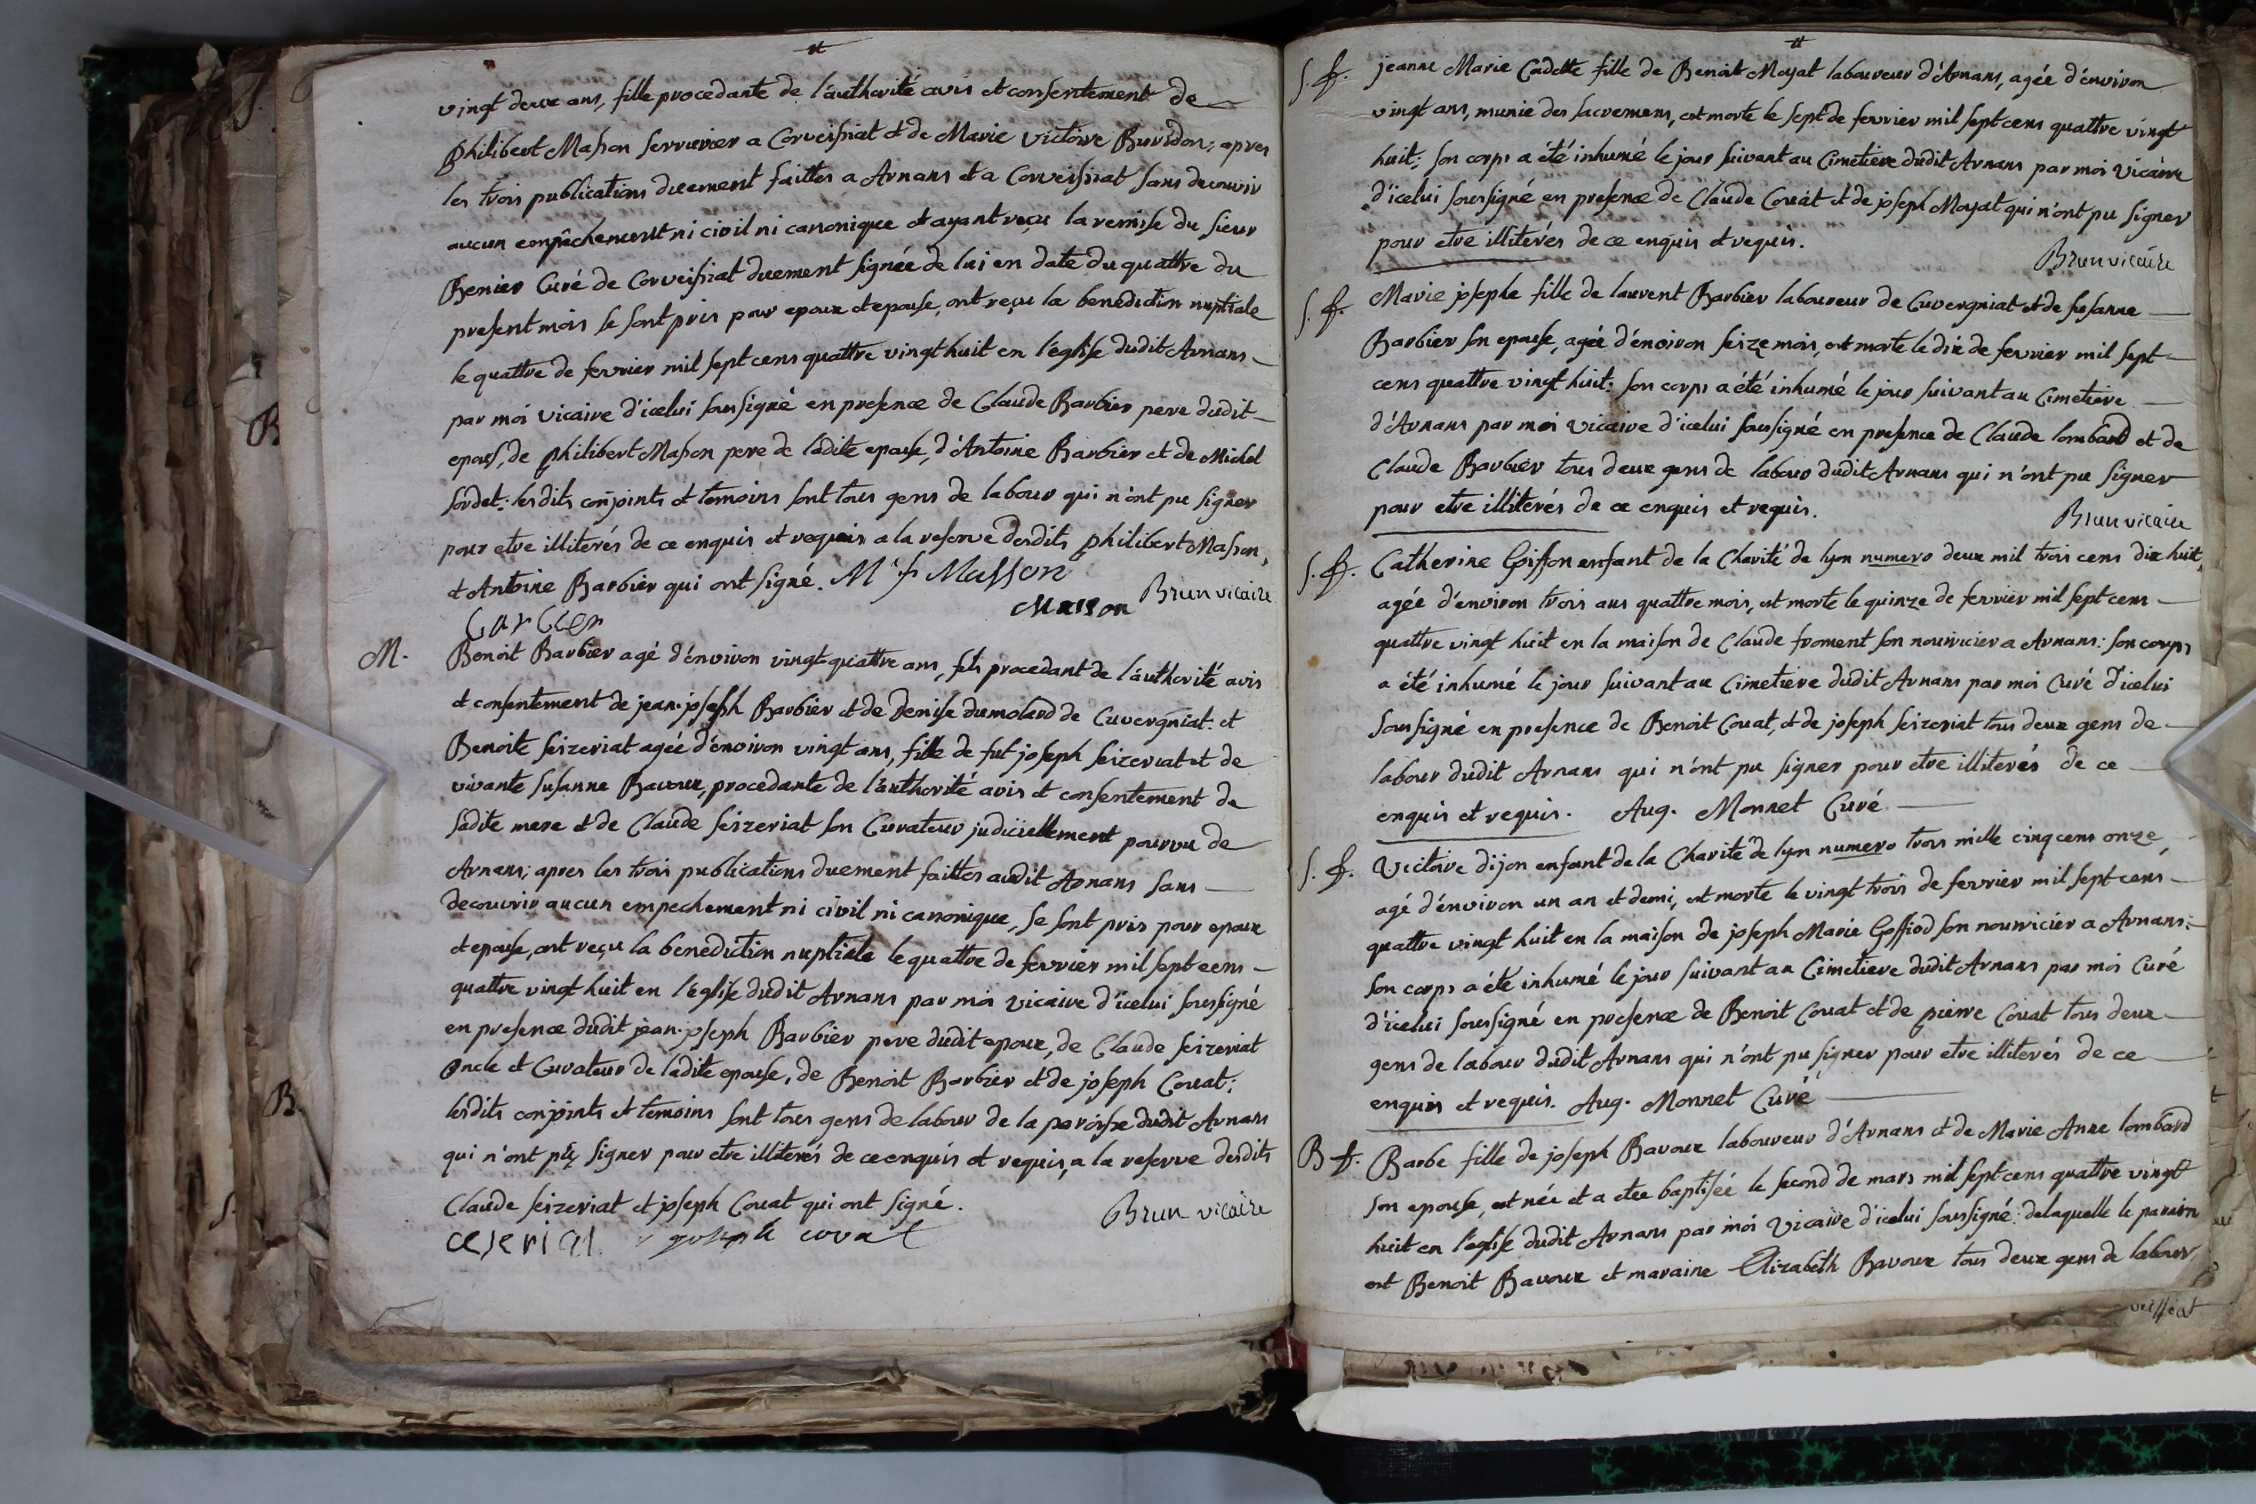 vingt deux ans, fille procedante de l'authorité avis et consentement de
philibert Masson serrurier a Corveissiat et de Marie victoire Buridon; apres
les trois publications duement faittes a Arnans et a Corveissiat sans decouvrir
aucun empêchement ni civil ni canonique et ayant reçu la remise du sieur
Benier Curé de Corveissiat duement signée de lui en date du quattre du
present mois se sont pris pour epoux et epouse, ont reçu la benediction nuptiale
le quattre de fevrier mil sept cens quattre vingt huit en l'église dudit Arnans
par moi vicaire d'icelui soussigné en presence de Claude Barbier pere dudit
epoux, de philibert Masson pere de ladite epouse, d'Antoine Barbier et de Michel
Sordet: lesdits conjoints et temoins sont tous gens de labour qui n'ont pu signer
pour etre illiterés de ce enquis et requis a la reserve desdits philibert Masson,
et Antoine Barbier qui ont signé. M f Masson
Masson Brun vicaire
M. Benoit Barbier agé d'environ vingt-quattre ans, fils procedant de l'authorité avis
et consentement de jean-joseph Barbier et de Denise dumolard de Cuvergniat: et
Benoite Seizeriat agée d'environ vingt ans, fille de fut joseph Seizeriat et de
vivante Susanne Bavoux, procedante de l'authorité avis et consentement de
sadite mere et de Claude Seizeriat son Curateur judiciellement pourvu de
Arnans; apres les trois publications duement faittes audit Arnans sans
decouvrir aucun empechement ni civil ni canonique, se sont pris pour epoux
et epouse, ont reçu la benediction nuptiale le quattre de fevrier mil sept cens
quattre vingt huit en l'église dudit Arnans par moi vicaire d'icelui soussigné
en presence dudit jean-joseph Barbier pere dudit epoux, de Claude Seizeriat
Oncle et Curateur de ladite epouse, de Benoit Barbier et de joseph Couat;
lesdits conjoints et temoins sont tous gens de labour de la paroisse dudit Arnans
qui n'ont pu signer pour etre illiterés de ce enquis et requis, a la reserve desdits
Claude Seizeriat et joseph Couat qui ont signé.
ceseriat joseph couat Brun vicaire
S. f. jeanne Marie Cadette fille de Benoit Moyat laboureur d'Arnans, agée d'environ
vingt ans, munie des sacremens, est morte le sept de fevrier mil sept cens quattre vingt
huit; son corps a été inhumé le jour suivant au Cimetiere dudit Arnans par moi Vicaire
d'icelui soussigné en presence de Claude Couat et de joseph Moyat qui n'ont pu signer
pour etre illiterés de ce enquis et requis.
Brun vicaire
S. f. Marie josephe fille de laurent Barbier laboureur de Cuvergniat et de susanne
Barbier son epouse, agée d'environ seize mois, est morte le dix de fevrier mil sept
cens quattre vingt huit: son corps a été inhumé le jour suivant au Cimetiere
d'Arnans par moi vicaire d'icelui soussigné en presence de Claude lombard et de
Claude Barbier tous deux gens de labour dudit Arnans qui n'ont pu signer
pour etre illiterés de ce enquis et requis.
Brun vicaire
S. f. Catherine Goiffon enfant de la Charité de lyon numero deux mil trois cens dix huit,
agée d'environ trois ans quattre mois, est morte le quinze de fevrier mil sept cens
quattre vingt huit en la maison de Claude froment son nourricier a Arnans: son corps
a été inhumé le jour suivant au Cimetiere dudit Arnans par moi Curé d'icelui
soussigné en presence de Benoit Couat, et de joseph Seizeriat tous deux gens de
labour dudit Arnans qui n'ont pu signer pour etre illiterés de ce
enquis et requis. Aug. Monnet Curé
S. f. Victoire dijon enfant de la Charité de lyon numero trois mille cinq cens onze,
agé d'environ un an et demi, est morte le vingt trois de fevrier mil sept cens
quattre vingt huit en la maison de joseph Marie Goffiod son nourricier a Arnans:
son corps a été inhumé le jour suivant au Cimetiere dudit Arnans par moi Curé
d'icelui soussigné en presence de Benoit Couat et de pierre Couat tous deux
gens de labour dudit Arnans qui n'ont pu signer pour etre illiterés de ce
enquis et requis. Aug. Monnet Curé
B f. Barbe fille de joseph Bavoux laboureur d'Arnans et de Marie Anne lombard
son epouse, est née et a etée baptisée le second de mars mil sept cens quattre vingt
huit en l'église dudit Arnans par moi Vicaire d'icelui soussigné: de laquelle le parain
est Benoit Bavoux et maraine Elizabeth Bavoux tous deux gens de labour